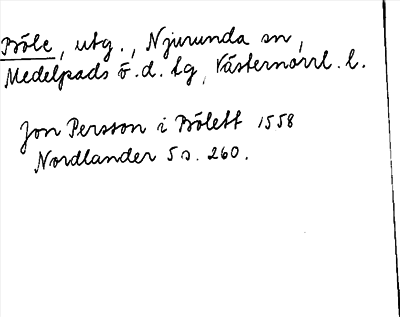 Böle, utg., Njurunda sn,
Medelpads ö.d. tg, Västernorrl. l.
Jon Persson i Bölett 1558
Nordlander 5 s. 260.